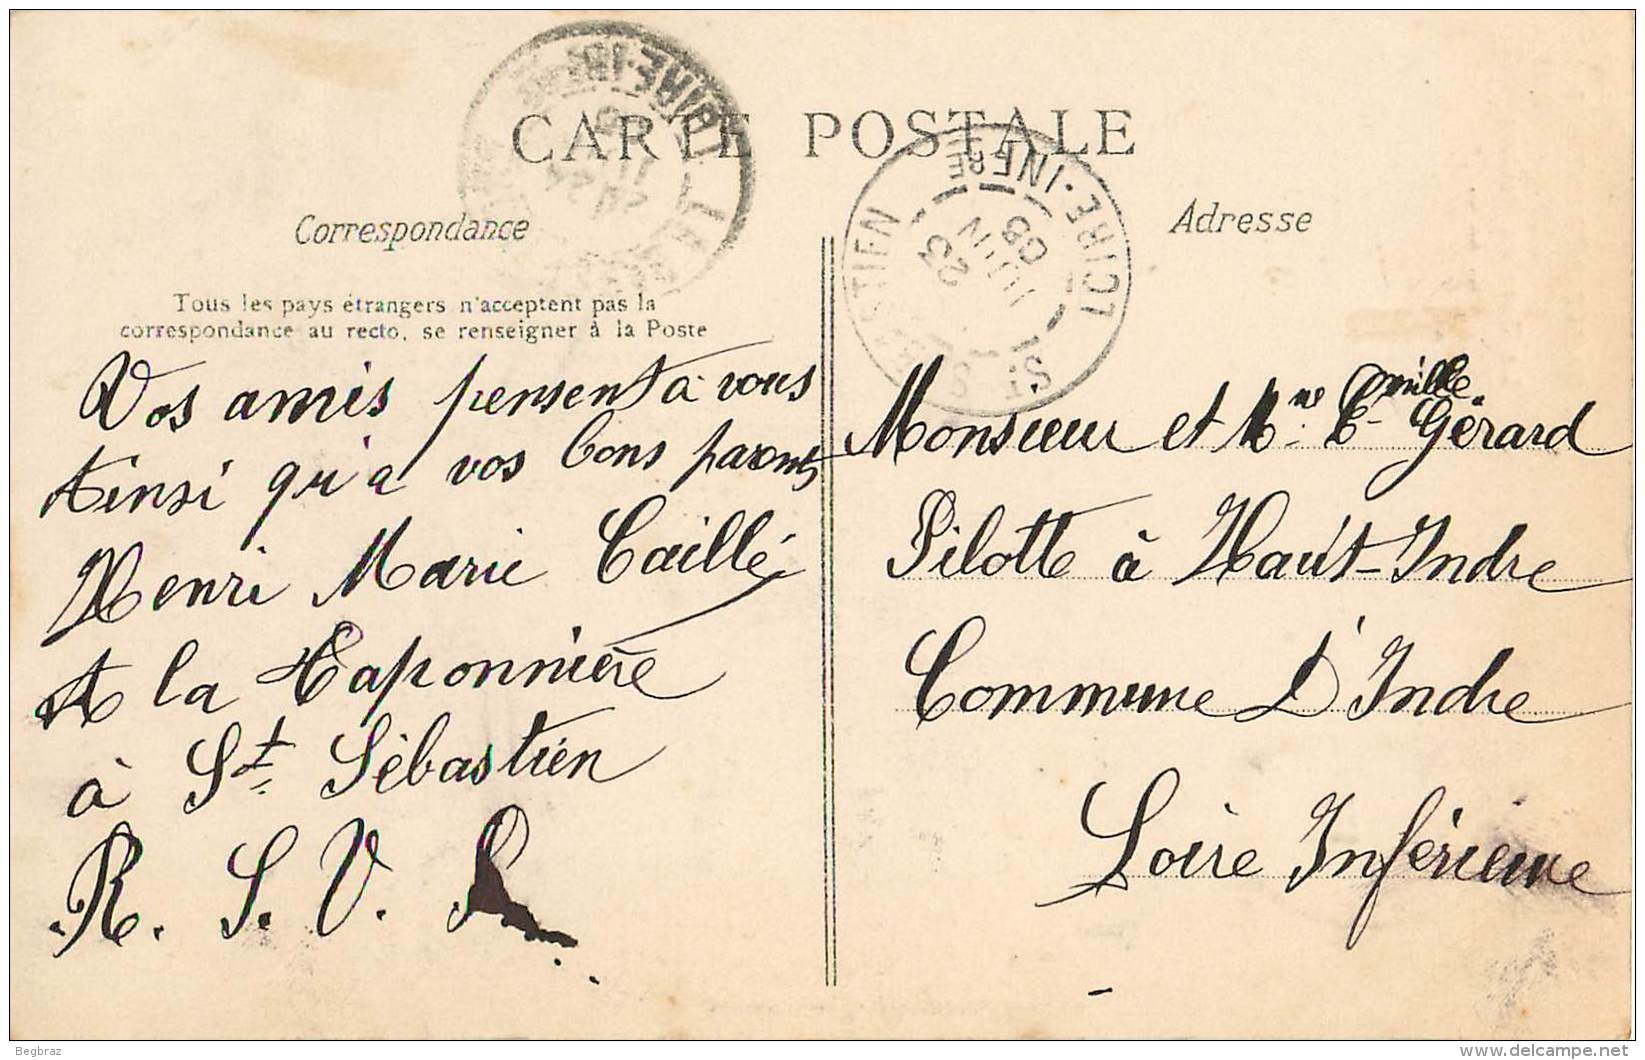 CARTE POSTALE
Correspondance
Tous les pays étrangers n'acceptent pas la
correspondance au recto, se renseigner à la Poste
Vos amis pensent à vous
Ainsi qu'a vos bons parents
Henri Marie Caillé
A la Taponnière
à St. Sébastien
R. S. V. P.
LOIRE-INFRE
Adresse
ST SÉBASTIEN
LOIRE-INFRE
23
JUIN
08
Monsieur et Mme C. Gérard
Camille
Pilotte à Haut-Indre
Commune D'Indre
Loire Inférieure
Begbraz
delcampe.net